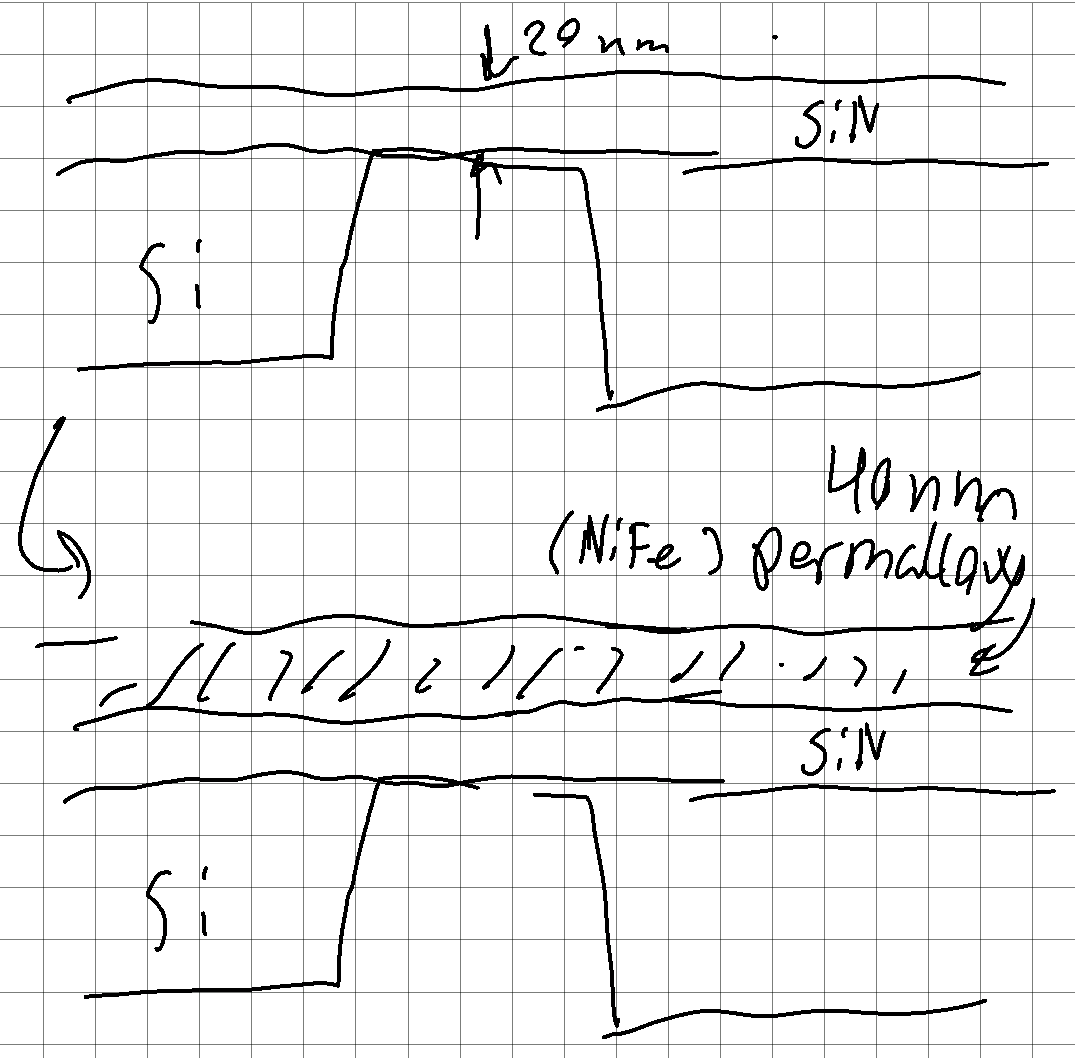 20 nm
SiN
Si
40 nm
(NiFe) permalloy
SiN
Si